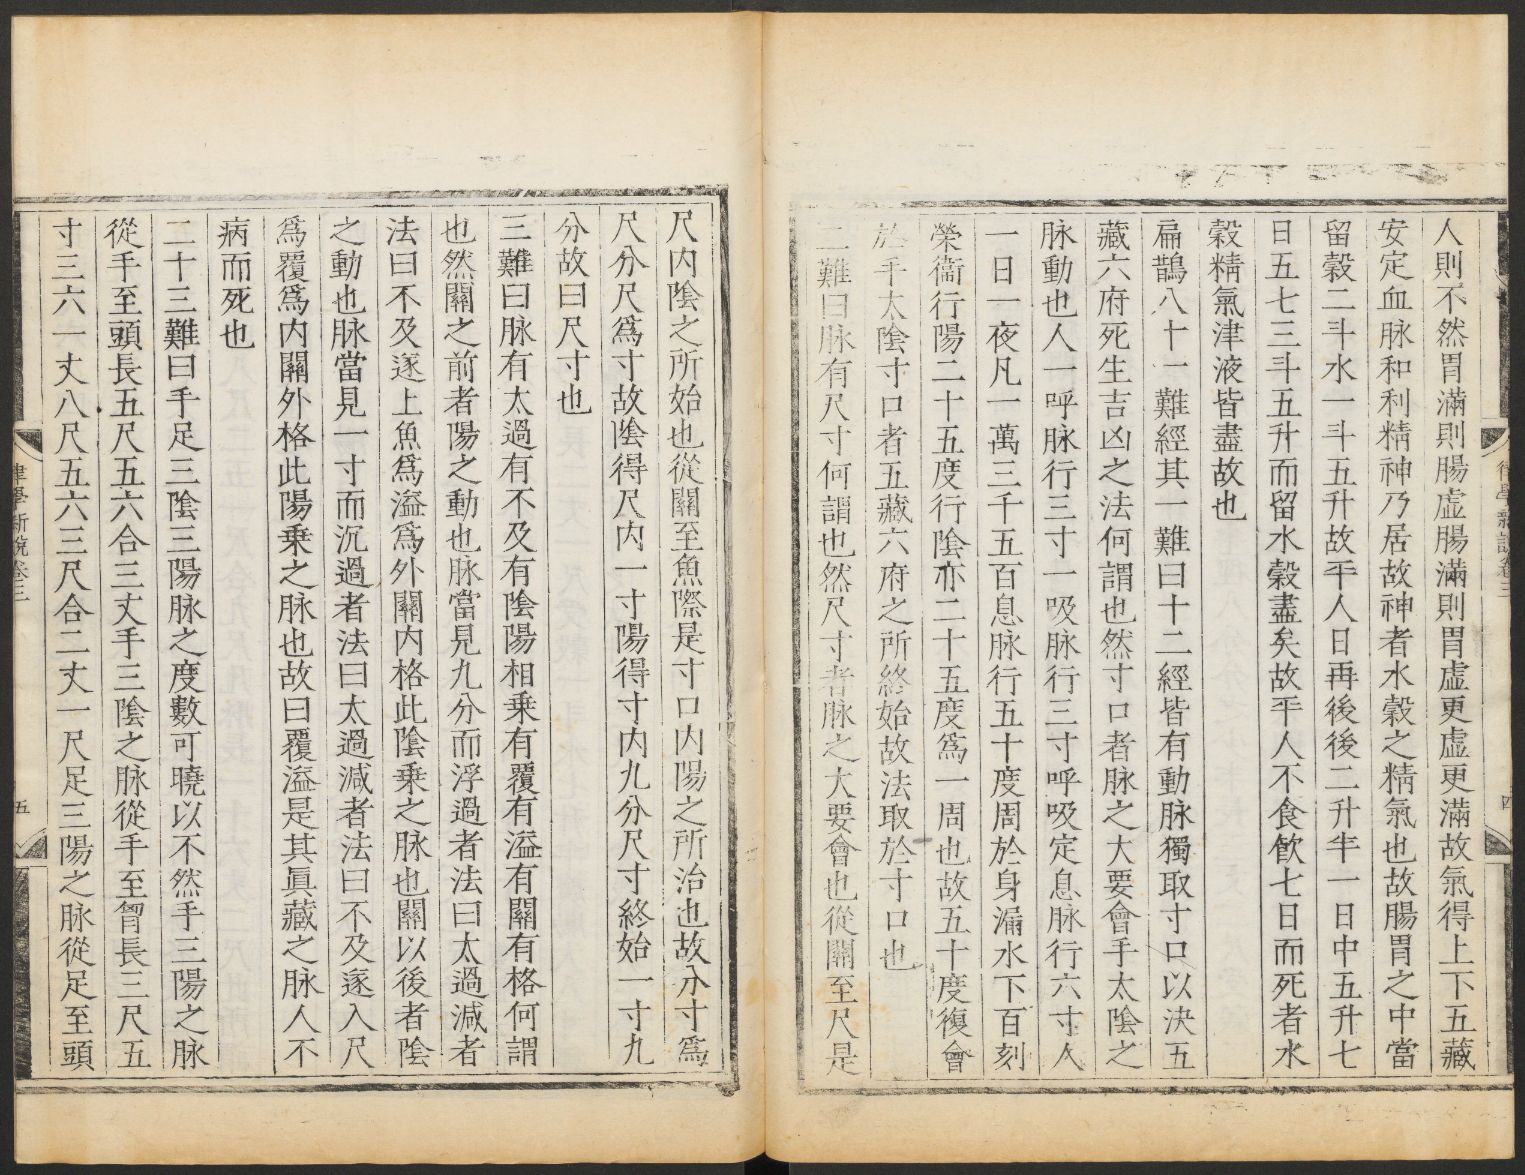 人則不然胃滿則腸虛腸滿則胃虛更虛更滿故氣得上下五藏
安定血脉和利精神乃居故神者水穀之精氣也故腸胃之中當
留穀二斗水一斗五升故平人日再後後二升半一日中五升七
日五七三斗五升而留水穀盡矣故平人不食飲七日而死者水
穀精氣津液皆盡故也
扁鵲八十一難經其一難曰十二經皆有動脉獨取寸口以決五
藏六府死生吉凶之法何謂也然寸口者脉之大要會手太陰之
脉動也人一呼脉行三寸一吸脉行三寸呼吸定息脉行六寸人
一日一夜凡一萬三千五百息脉行五十度周於身漏水下百刻
榮衞行陽二十五度行陰亦二十五度爲一周也故五十度復會
於手太陰寸口者五藏六府之所終始故法取於寸口也
二難曰脉有尺寸何謂也然尺寸者脉之大要會也從關至尺是
律學新說卷三
四
尺內陰之所始也從關至魚際是寸口內陽之所治也故分寸爲
尺分尺爲寸故陰得尺內一寸陽得寸內九分尺寸終始一寸九
分故曰尺寸也
三難曰脉有太過有不及有陰陽相乗有覆有溢有關有格何謂
也然關之前者陽之動也脉當見九分而浮過者法曰太過減者
法曰不及遂上魚爲溢爲外關內格此陰乗之脉也關以後者陰
之動也脉當見一寸而沉過者法曰太過減者法曰不及遂入尺
爲覆爲內關外格此陽乗之脉也故曰覆溢是其眞藏之脉人不
病而死也
二十三難曰手足三陰三陽脉之度數可曉以不然手三陽之脉
從手至頭長五尺五六合三丈手三陰之脉從手至胷長三尺五
寸三六一丈八尺五六三尺合二丈一尺足三陽之脉從足至頭
律學新說卷三
五